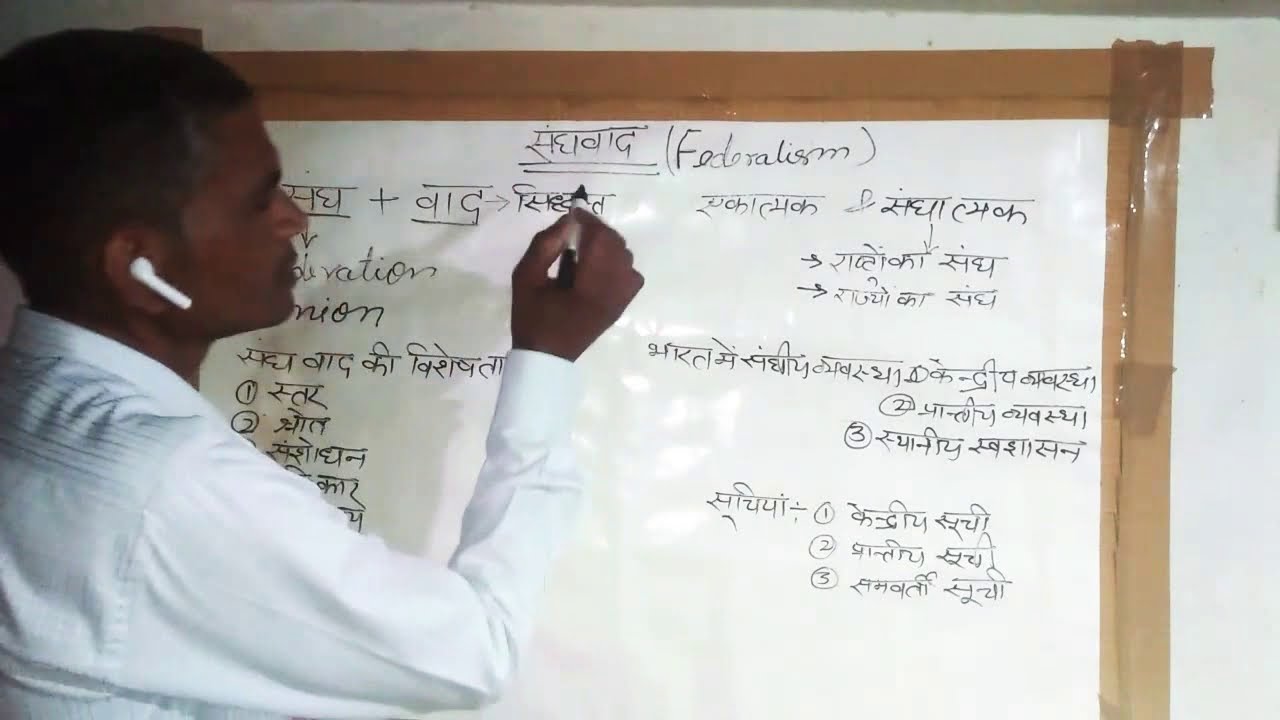 संघवाद (Federalism)
संघ + वाद → सिध्दांत
एकात्मक & संघात्मक
→ राष्ट्रों का संघ
→ राज्यों का संघ
deration
nion
संघ वाद की विशेषता
① स्तर
② श्रोत
संशोधन
कार
भारत में संघीय व्यवस्था ① केन्द्रीय व्यवस्था
② प्रान्तीय व्यवस्था
③ स्थानीय स्वशासन
सूचियां:- ① केन्द्रीय सूची
② प्रान्तीय सूची
③ समवर्ती सूची